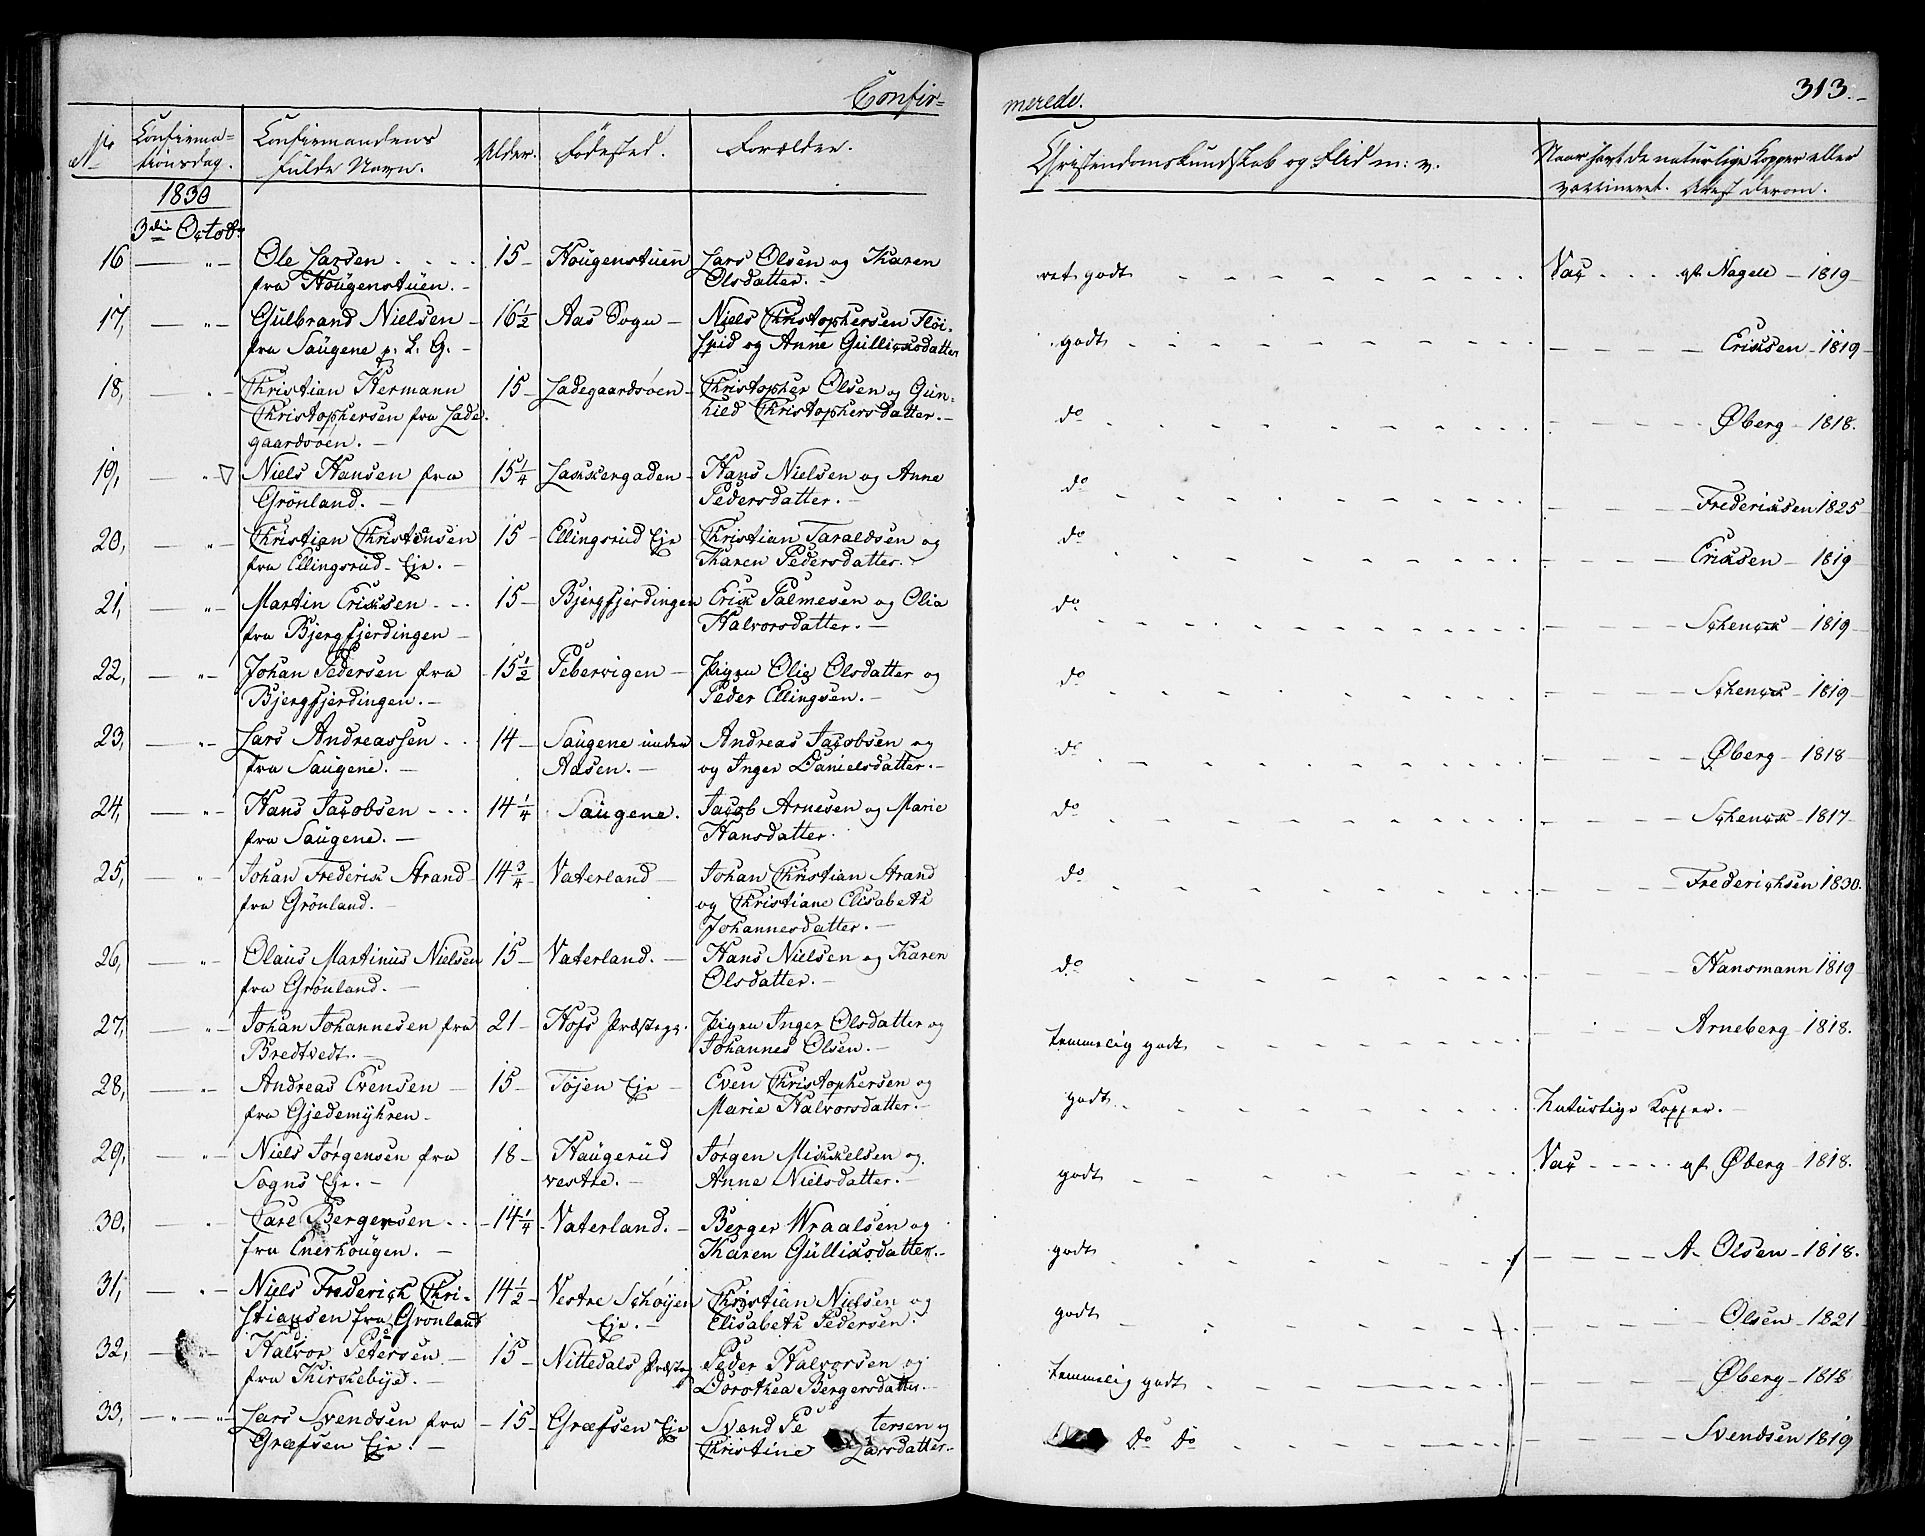 Confir=
merede.
313.
No
Confirma=
tionsdag.
Confirmandens
fulde Navn.
Alder.
Fødested.
Forældre.
Christendomskundskab og Flid m: v.
Naar havt de naturlige Kopper eller
vaccineret. Attest derom.
1830
3die Octob.
16 — " - Ole Larsen . . . . 15 - Hougenstuen Lars Olsen og Karen ret godt Vac . . . af Nagell - 1819
fra Hougenstuen. - Olsdatter. -
17, — " - Gulbrand Nielsen - 16½ - Aas Sogn - Niels Christophersen Fløi- godt Ericksen - 1819
fra Saugene p. L. G. - spid og Anne Gulliksdatter
18, — " Christian Hermann 15 - Ladegaardsøen - Christopher Olsen og Gun- do Øberg - 1818.
Christophersen fra Lade- hild Christophersdatter. -
gaardsøen. -
19, — " Niels Hansen fra 15¼ - Lakkergaden - Hans Nielsen og Anne do Fredericksen 1825
Grönland. - Pedersdatter. -
20, — " Christian Christensen 15 - Ellingsrud Eje Christian Taraldsen og do Ericksen - 1819
fra Ellingsrud Eje. - Karen Pedersdatter. -
21, — " Martin Ericksen - . . 15 - Bjergfjerdingen Erick Palmesen og Olia do Schenck - 1819
fra Bjergfjerdingen - Halvorsdatter. -
22, — " Johan Pedersen fra - 15½ Pebervigen - Pigen Olia Olsdatter og do Schenck - 1819
Bjergfjerdingen. - Peder Ellingsen. -
23, — " Lars Andreassen . . 14 - Saugene under Andreas Jacobsen og do Øberg - 1818
fra Saugene. - Aasen. - og Inger Danielsdatter. -
24, — " Hans Jacobsen - . . 14¼ Saugene. Jacob Arnesen og Marie do Schenck - 1817
fra Saugene. - Hansdatter.
25, — " Johan Frederik Strand 14¾ Vaterland - Johan Christian Strand do Frederichsen 1830.
fra Grönland. - og Christiane Elisabeth
Johannesdatter. -
26, — " Olaus Martinus Nielsen 15 - Vaterland. - Hans Nielsen og Karen do Hansmann 1819
fra Grönland. - Olsdatter. -
27, — " Johan Johannesen fra 21 - Hofs Præsteg. Pigen Inger Olsdatter og temmelig godt Arneberg - 1818.
Bredtvedt. - Johannes Olsen. -
28, — " Andreas Evensen - 15 - Töjen Eje - Even Christophersen og godt Naturlige Kopper. -
fra Gjedemyhren - Marie Halvorsdatter. -
29, — " Niels Jørgensen fra 18 - Haugerud Jørgen Mickelsen og godt Vac - - - - af Øberg - 1818.
Sogns Eje. - vestre. - Anne Nielsdatter. -
30, — " Carl Bergersen . . - 14¼ - Vaterland. - Berger Wraalsen og godt A. Olsen - 1818.
fra Enerhougen. - Karen Gulliksdatter. -
31, — " Niels Frederich Chri- 14½ - Vestre Schøyen Christian Nielsen og godt Olsen - 1821
stiansen fra Gronland Eje. - Elisabeth Pedersen.
32, — " Halvor Petersen - 15 - Nittedals Præsteg. Peder Halvorsen og temmelig godt Øberg - 1818
fra Kirkebye. - Dorothea Bergersdatter. -
33, — " — " Lars Svendsen fra - 15 - Græfsen Eje Svend Petersen og Do Do Svendsen 1819
Græfsen Eje. - Christine Larsdatter. -